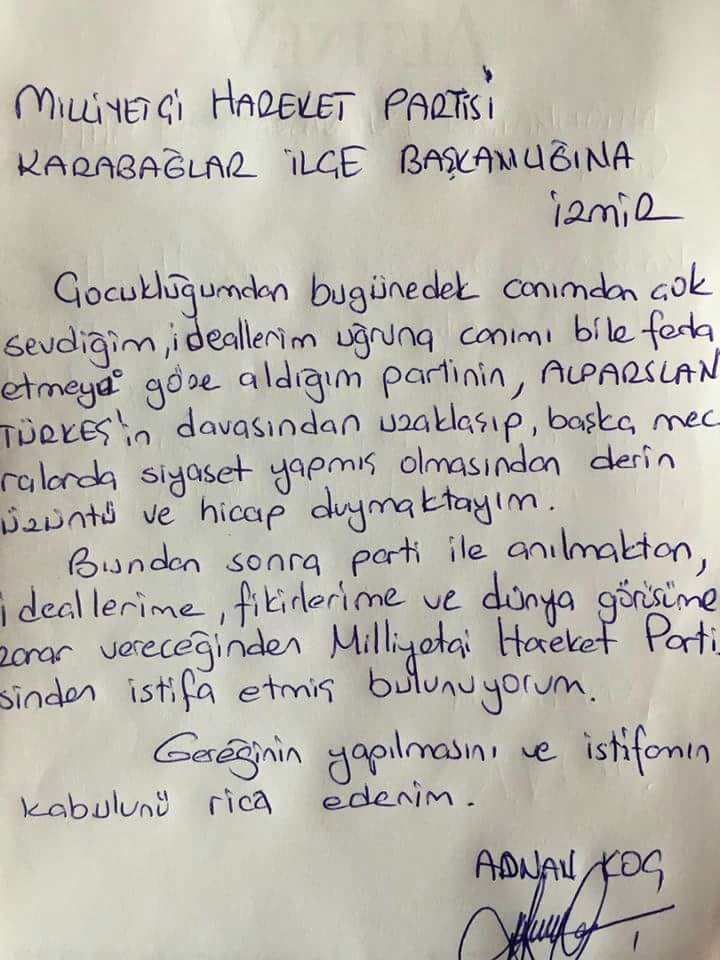 MİLLİYETÇİ HAREKET PARTİSİ
KARABAĞLAR İLÇE BAŞKANLIĞINA
İZMİR
Çocukluğumdan bugünedek canımdan çok
sevdiğim, ideallerim uğruna canımı bile feda
etmeye göze aldığım partinin, ALPARSLAN
TÜRKEŞ'in davasından uzaklaşıp, başka mec
ralarda siyaset yapmış olmasından derin
üzüntü ve hicap duymaktayım.
Bundan sonra parti ile anılmaktan,
ideallerime, fikirlerime ve dünya görüşüme
zarar vereceğinden Milliyetçi Hareket Parti
sinden istifa etmiş bulunuyorum.
Gereğinin yapılmasını ve istifanın
kabulunü rica ederim.
ADNAN KOÇ